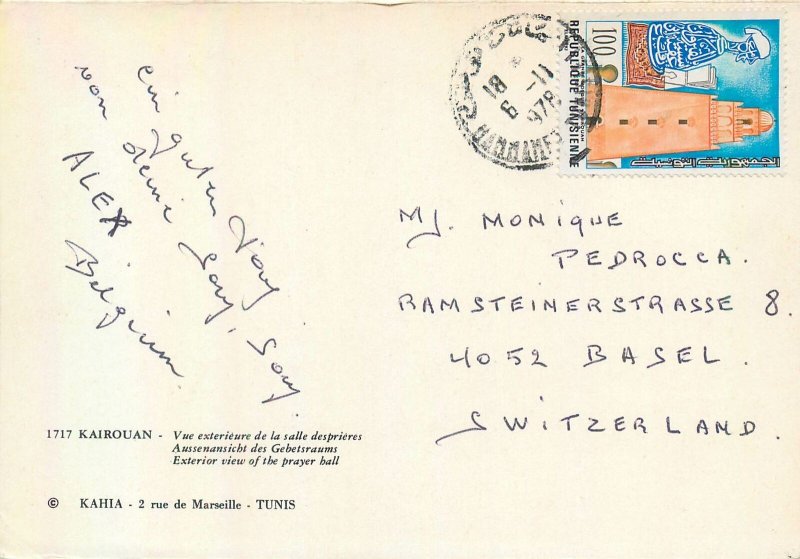 ein guten
von deine Sony, Sony.
ALEX
Belgium.
1717 KAIROUAN - Vue exterieure de la salle desprières
Aussenansicht des Gebetsraums
Exterior view of the prayer hall
© KAHIA - 2 rue de Marseille - TUNIS
100
REPUBLIQUE TUNISIENNE
الجمهورية التونسية
18
-11
978
HAMMAMET
MJ. MONIQUE
PEDROCCA.
RAMSTEINERSTRASSE 8.
4052 BASEL.
SWITZERLAND.